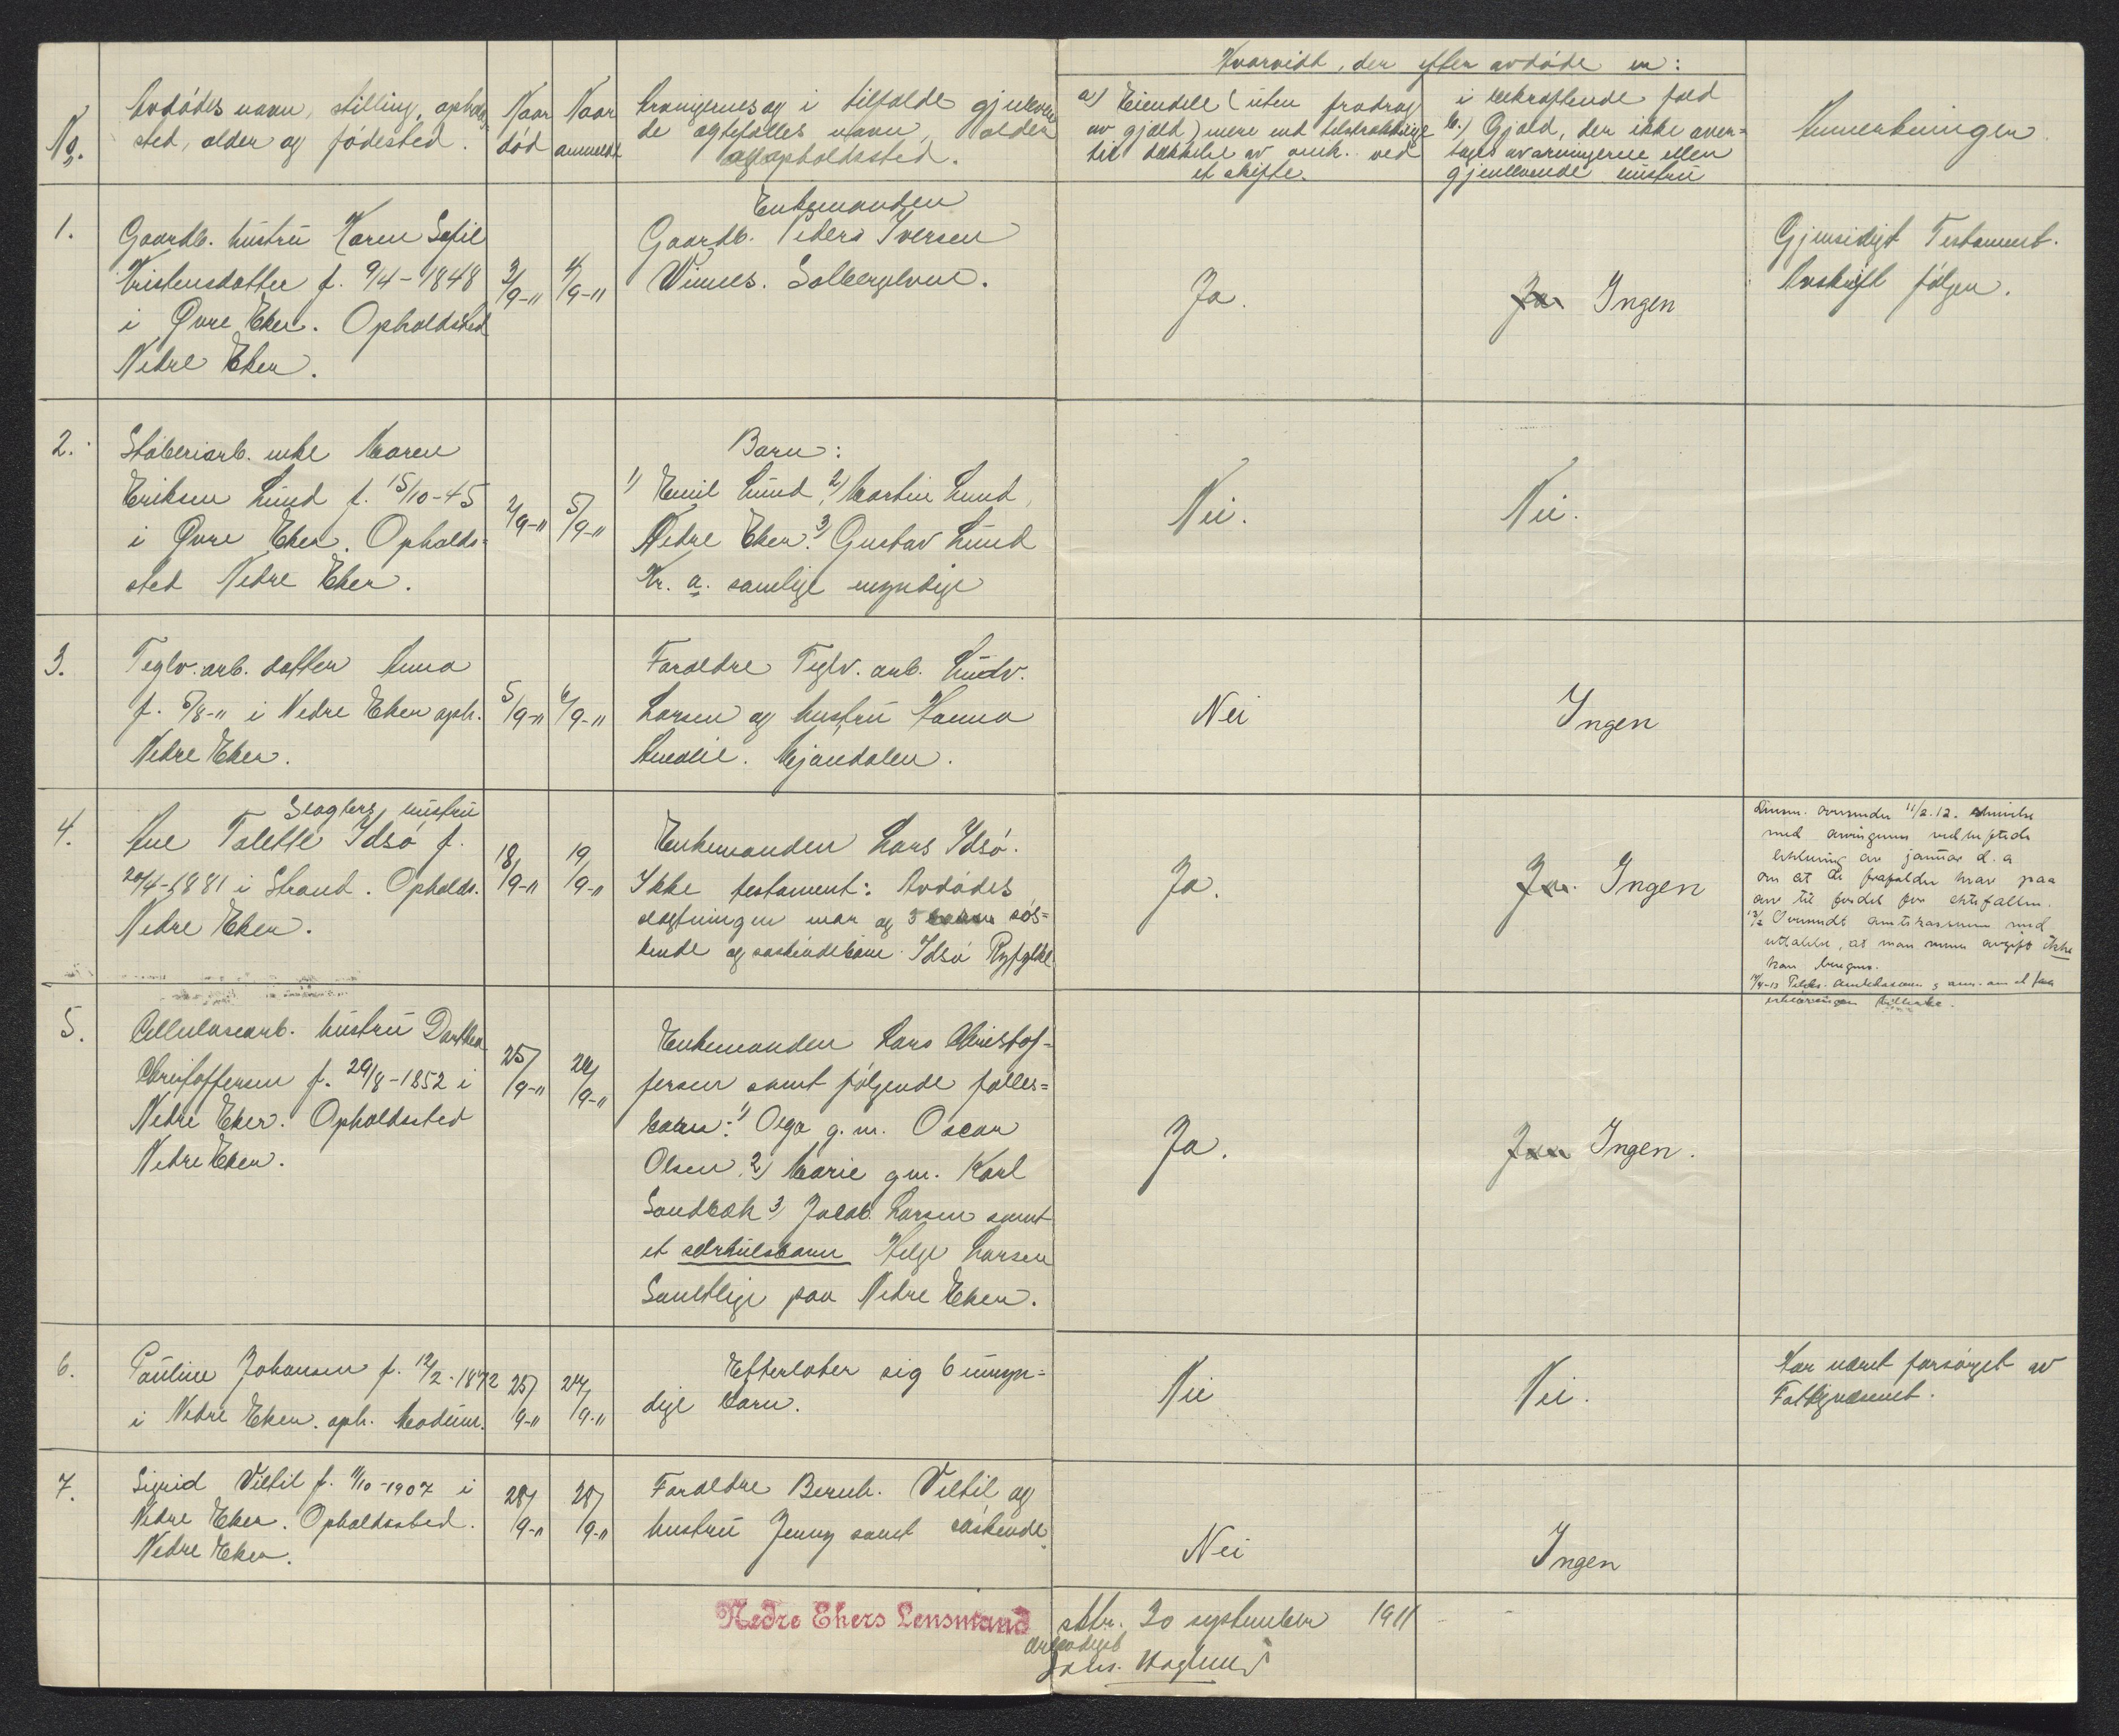 Hvorvidt, der efter avdøde er:
No.
Avdødes navn, stilling, opholds-
sted, alder og fødested.
Naar
død
Naar
anmeldt
Arvingernes og i tilfælde gjenleven
de ægtefælles navn, alder
og opholdssted.
a) Eiendele (uten fradrag
av gjæld) mere end tilstrækkelige
til dækkelse av omk. ved
et skifte.
i bekræftende fald
b.) Gjæld, der ikke over-
tages av arvingerne eller
gjenlevende hustru
Anmerkninger
1.
Gaardb. hustru Karen Sofie
Kristensdatter f. 9/4-1848
i Øvre Eker. Opholdssted
Nedre Eker.
3/9-11
4/9-11
Enkemanden
Gaardb. Peders Iversen
Vinnes. Solbergelven.
Ja.
Ja Ingen
Gjensidigt Testament.
Avskrift følger.
2.
Støberiarb. enke Maren
Eriksen Lund f. 15/10-45
i Øvre Eker. Opholds-
sted Nedre Eker.
2/9-11
5/9-11
Barn:
1) Emil Lund, 2) Martin Lund,
Nedre Eker. 3) Gustav Lund
Kr. a. samlige myndige
Nei.
Nei.
3.
Teglv. arb. datter Anna
f. 5/8-11 i Nedre Eker oph.
Nedre Eker.
5/9-11
6/9-11
Forældre Teglv. arb. Ludv.
Larsen og hustru Hanna
Amalie. Mjøndalen.
Nei
Ingen
4.
Slagters hustru
Ane Talette Idsø f.
20/4-1881 i Strand. Opholds.
Nedre Eker.
18/9-11
19/9-11
Enkemanden Lars Idsø.
Ikke testament: Avdødes
slægtninger mor og 5 søs-
kende og søskendebarn Idsø Ryfylke
Ja.
Ja. Ingen
11/2.12.
med arvingernes vedheftede
erklæring av januar d. a
om at de frafalder krav paa
arv til fordel for ektefællen.
Oversendt amtskassereren med
uttalelse, at man mener avgift ikke
kan beregnes.
5.
Cellulosearb. hustru Dorthea
Christoffersen f. 29/8-1852 i
Nedre Eker. Opholdssted
Nedre Eker.
25/9-11
26/9-11
Enkemanden Lars Christof-
fersen samt følgende fælles-
barn: 1) Olga g. m. Oscar
Olsen, 2) Marie gm. Karl
Sandbæk 3) Jacob Larsen samt
et særkulsbarn Helge Larsen
Samtlige paa Nedre Eker.
Ja.
Ja Ingen.
6.
Pauline Johansen f. 12/2-1872
i Nedre Eker. oph. Modum.
25/9-11
27/9-11
Efterlater sig 6 umyn-
dige barn.
Nei
Nei.
Har været forsørget av
Fattigvæsenet.
7.
Sigrid Veltil f. 11/10-1907 i
Nedre Eker. Opholdssted.
Nedre Eker.
28/9-11
28/9-11
Forældre Bernh. Veltil og
hustru Jenny samt søskende.
Nei
Ingen
Nedre Ekers Lensmand
sktr. 30 september 1911